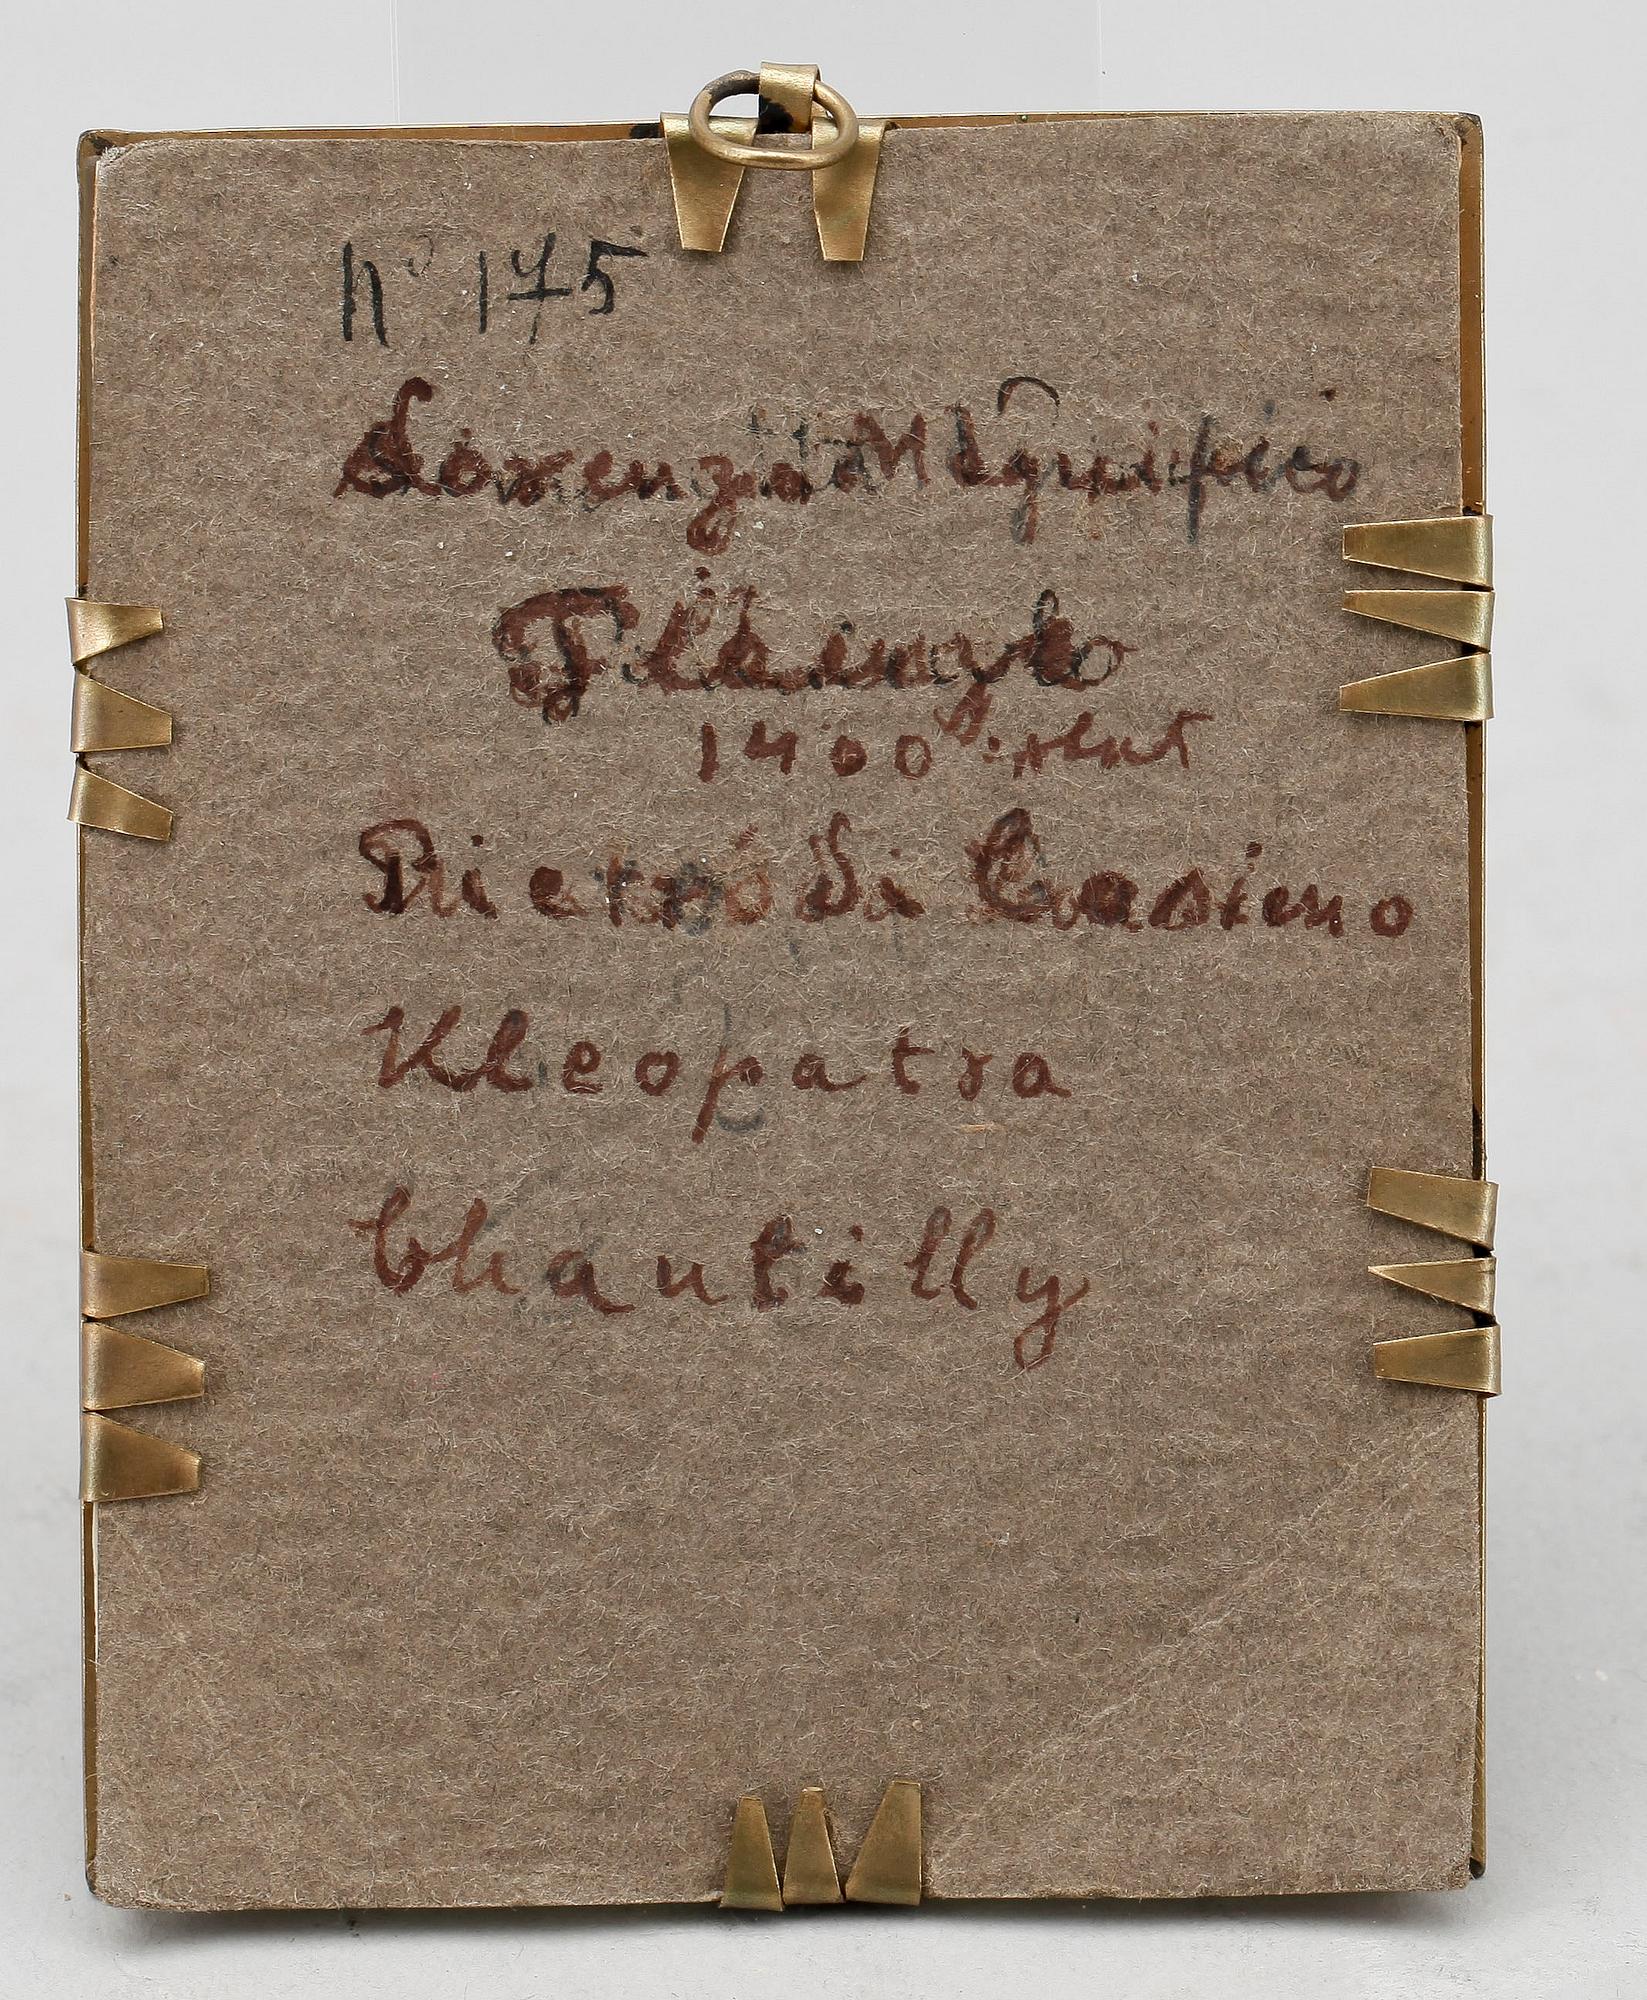 No 175
Lorenzo Magnifico
1400
Pietro di Cosimo
Kleopatra
Chantilly